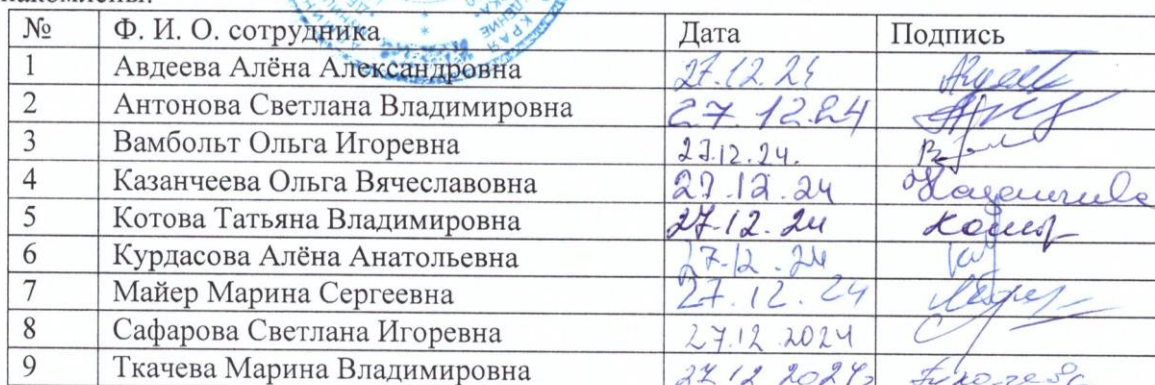 № Ф. И. О. сотрудника Дата Подпись
1 Авдеева Алёна Александровна 27.12.24
2 Антонова Светлана Владимировна 27.12.24
3 Вамбольт Ольга Игоревна 27.12.24.
4 Казанчеева Ольга Вячеславовна 27.12.24
5 Котова Татьяна Владимировна 27.12.24
6 Курдасова Алёна Анатольевна 27.12.24
7 Майер Марина Сергеевна 27.12.24
8 Сафарова Светлана Игоревна 27.12.2024
9 Ткачева Марина Владимировна 27.12.2024г